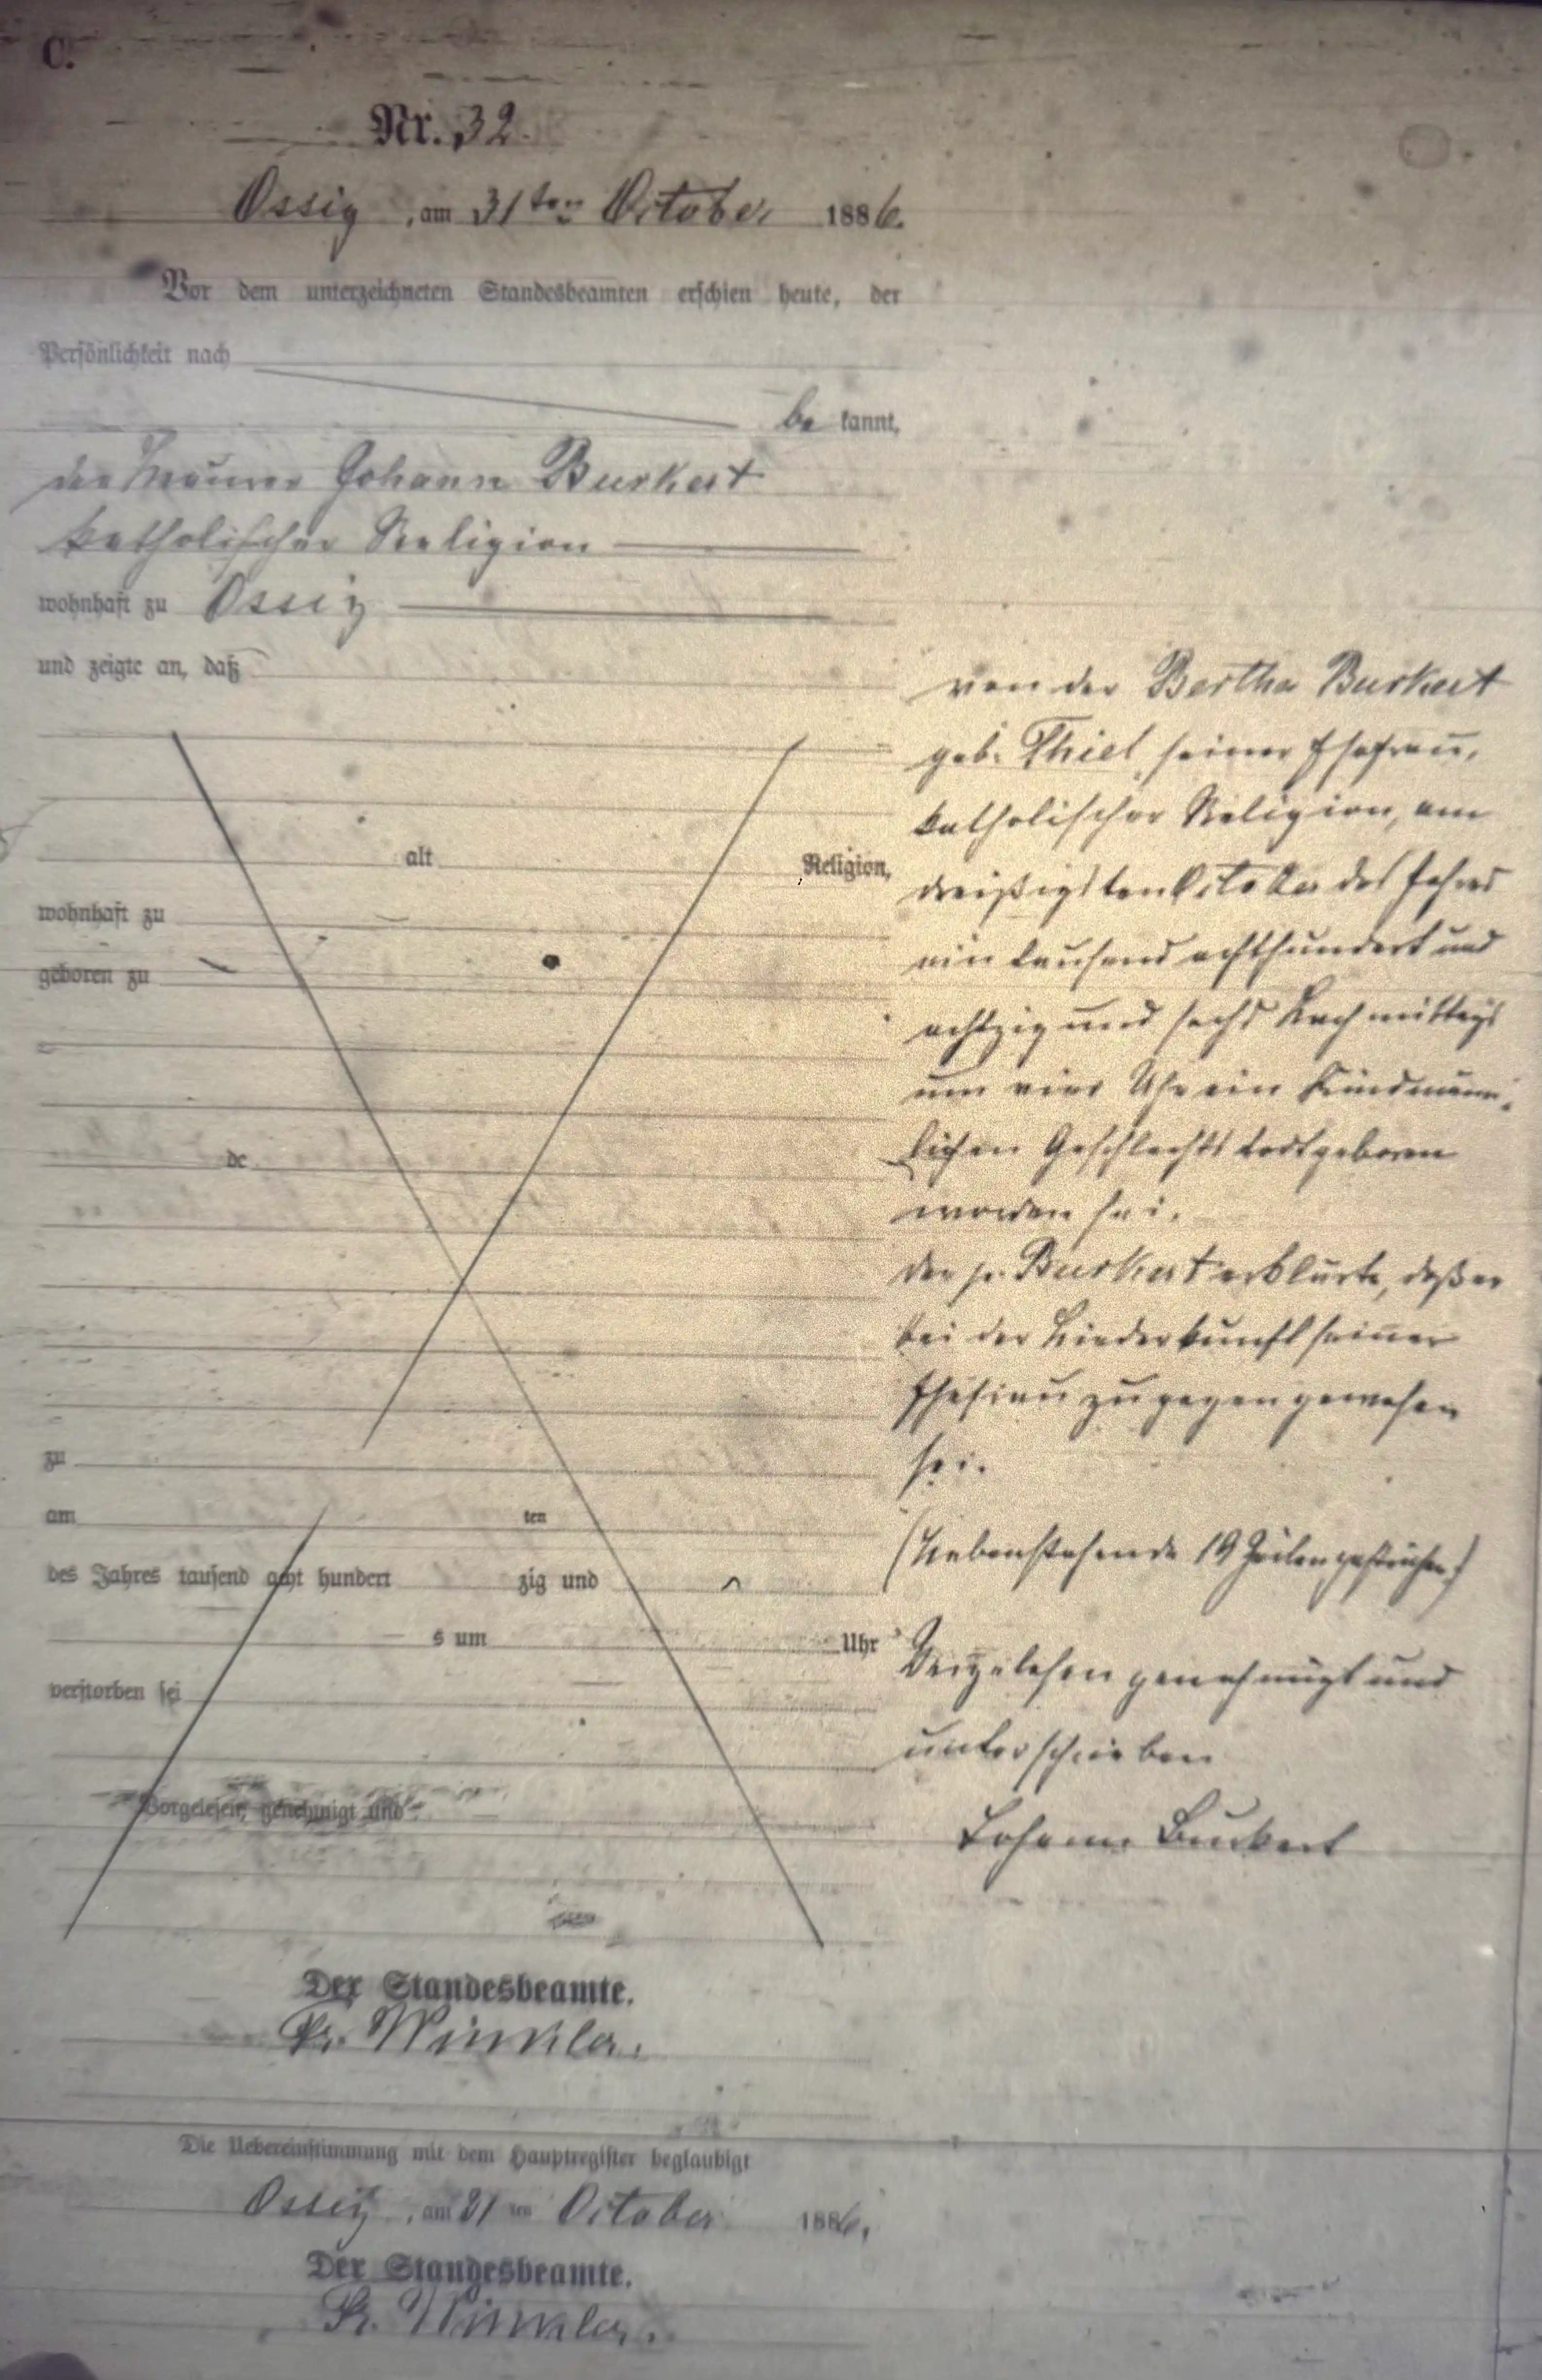 C.
Nr. 32.
Ossig, am 31ten October 1886.
Vor dem unterzeichneten Standesbeamten erschien heute, der
Persönlichkeit nach
be kannt,
der Maurer Johann Burkert
katholischer Religion
wohnhaft zu Ossig
und zeigte an, daß
von der Bertha Burkert
geb. Thiel seiner Ehefrau,
katholischer Religion, am
dreißigsten October des Jahres
ein tausend achthundert und
achtzig und sechs Nachmittags
um vier Uhr ein Kind männ-
lichen Geschlechts todtgeboren
worden sei.
der p. Burkert erklärte, daß er
bei der Niederkunft seiner
Ehefrau zugegen gewesen
sei.
(Nebenstehende 19 Zeilen gestrichen)
Vorgelesen genehmigt und
unterschrieben
Johann Burkert
alt
Religion,
wohnhaft zu
geboren zu
de
zu
am ten
des Jahres tausend acht hundert zig und
s um Uhr
verstorben sei
Vorgelesen, genehmigt und
Der Standesbeamte.
Fr. Winkler.
Die Uebereinstimmung mit dem Hauptregister beglaubigt
Ossig, am 31 ten October 1886.
Der Standesbeamte.
Fr. Winkler.